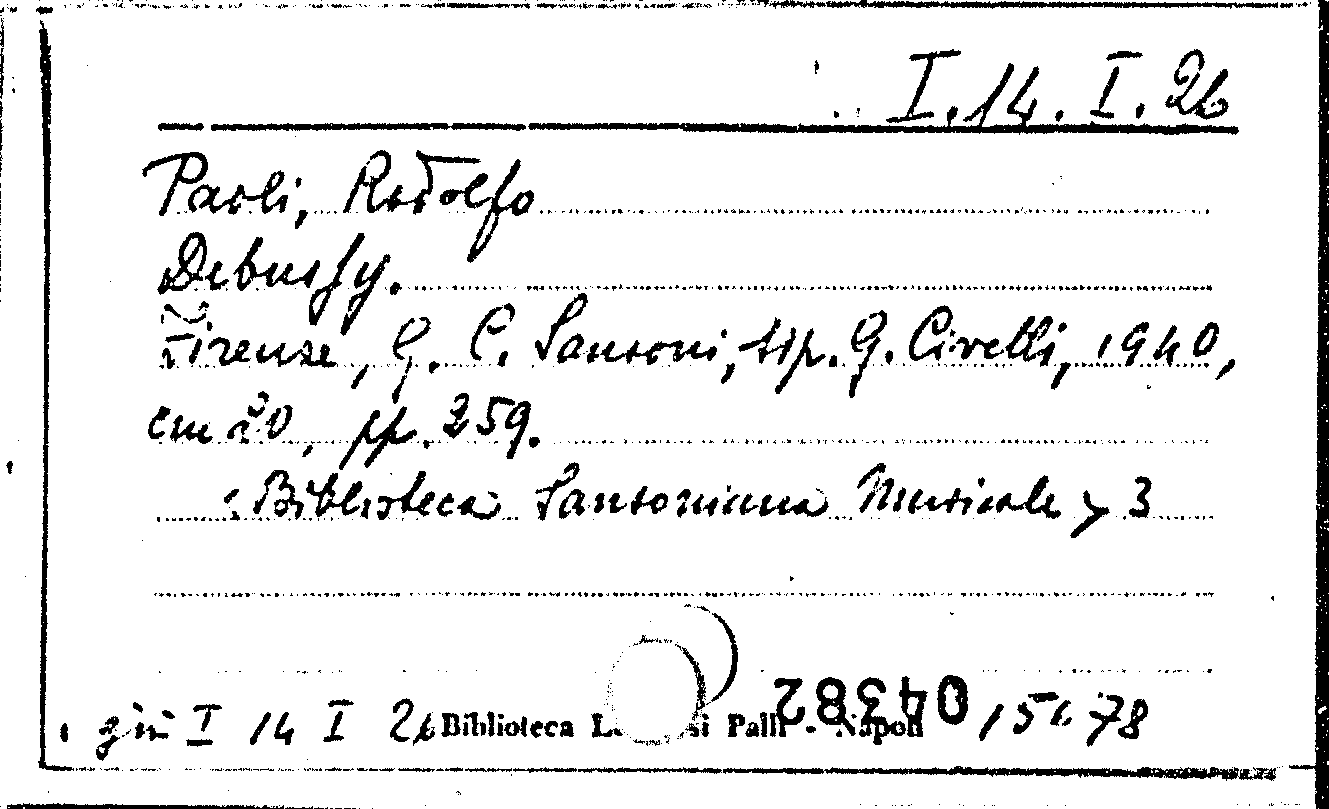 I. 14. I. 26
Paoli, Rodolfo
Debussy.
Firenze, G. C. Sansoni, tip. G. Civelli, 1940,
cm 20, pp. 259.
«Biblioteca Sansoniana Musicale» 3
già I 14 I 26 Biblioteca L si Palli - Napoli
04382